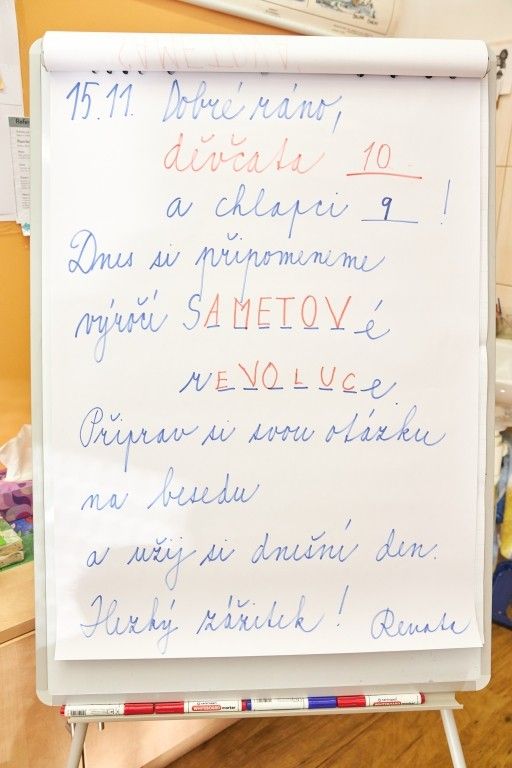 15.11. Dobré ráno,
děvčata 10
a chlapci 9 !
Dnes si připomeneme
výročí SAMETOVé
rEVOLUCe.
Připrav si svou otázku
na besedu
a užij si dnešní den.
Hezký zážitek! Renata